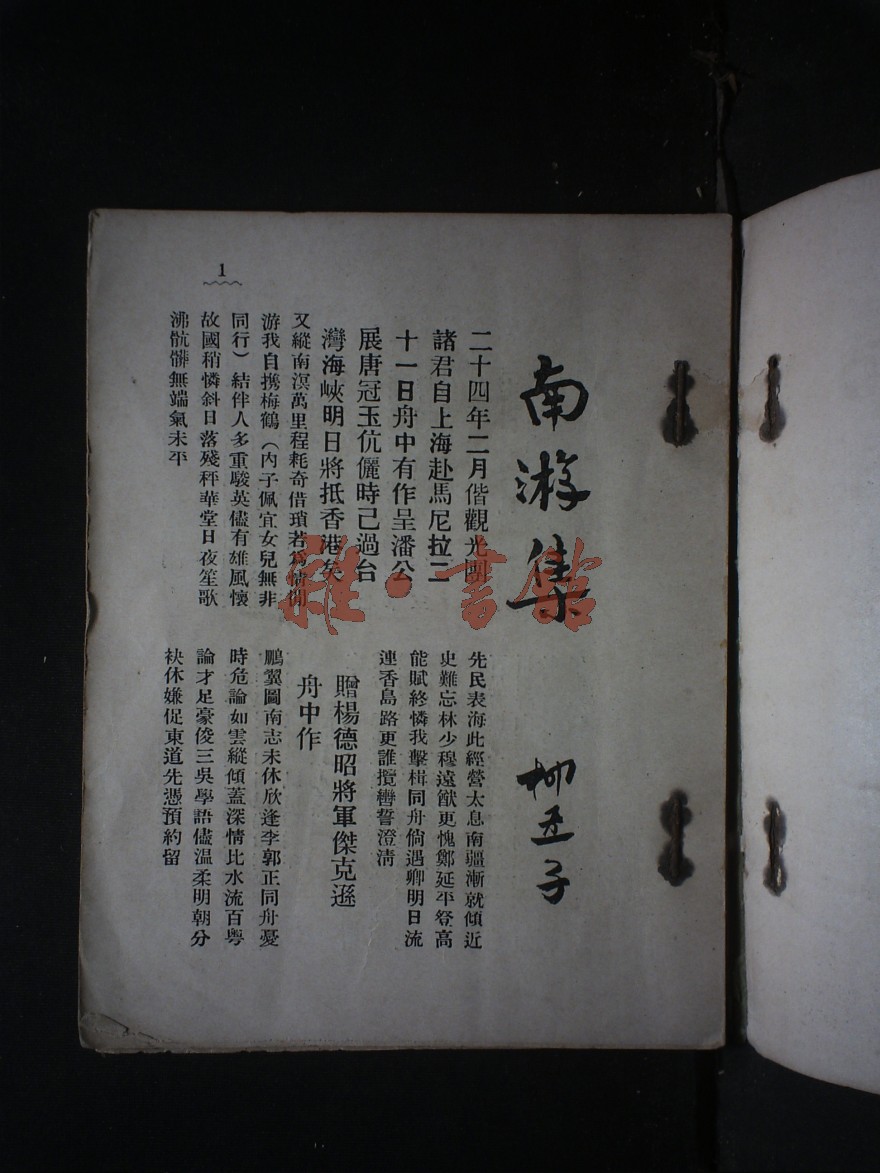 1
南游集
柳亞子
二十四年二月偕觀光團
諸君自上海赴馬尼拉二
十一日舟中有作呈潘公
展唐冠玉伉儷時己過台
灣海峽明日將抵香港矣
又縱南溟萬里程耗奇借瑣若為情閒
游我自攜梅鶴（內子佩宜女兒無非
同行）結伴人多重駿英儘有雄風懷
故國稍憐斜日落殘秤華堂日夜笙歌
沸骯髒無端氣未平
先民表海此經營太息南疆漸就傾近
史難忘林少穆遠猷更愧鄭延平登高
能賦終憐我擊楫同舟倘遇卿明日流
連香島路更誰攬轡誓澄清
贈楊德昭將軍傑克遜
舟中作
鵬翼圖南志未休欣逢李郭正同舟憂
時危論如雲縱傾蓋深情比水流百粵
論才足豪俊三吳學語儘温柔明朝分
袂休嫌促東道先憑預約留
雜·書館